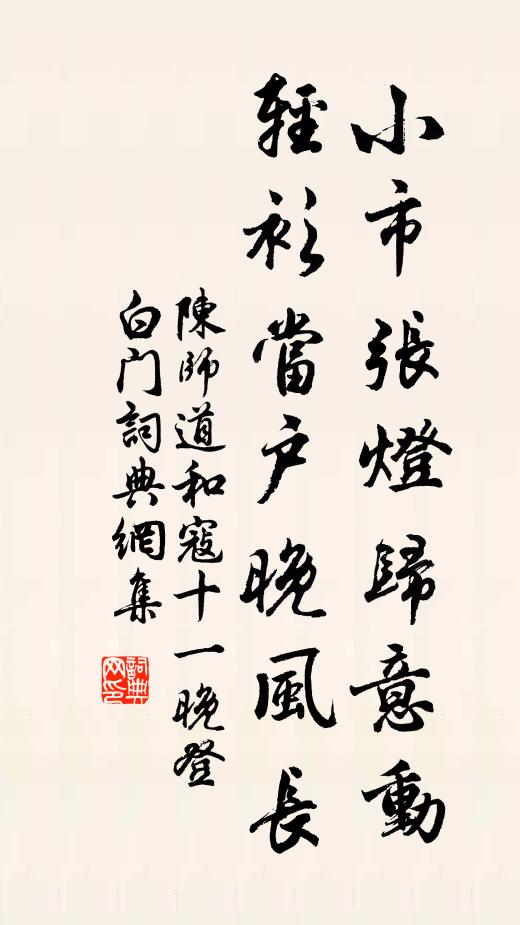 小市張燈歸意動
輕衫當户晚風長
陳師道和寇十一晚登
白门詞典網集
詞典网印